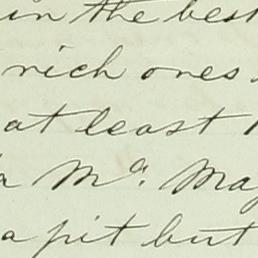 in the best
rich ones
at least
Ma. May
a pit but